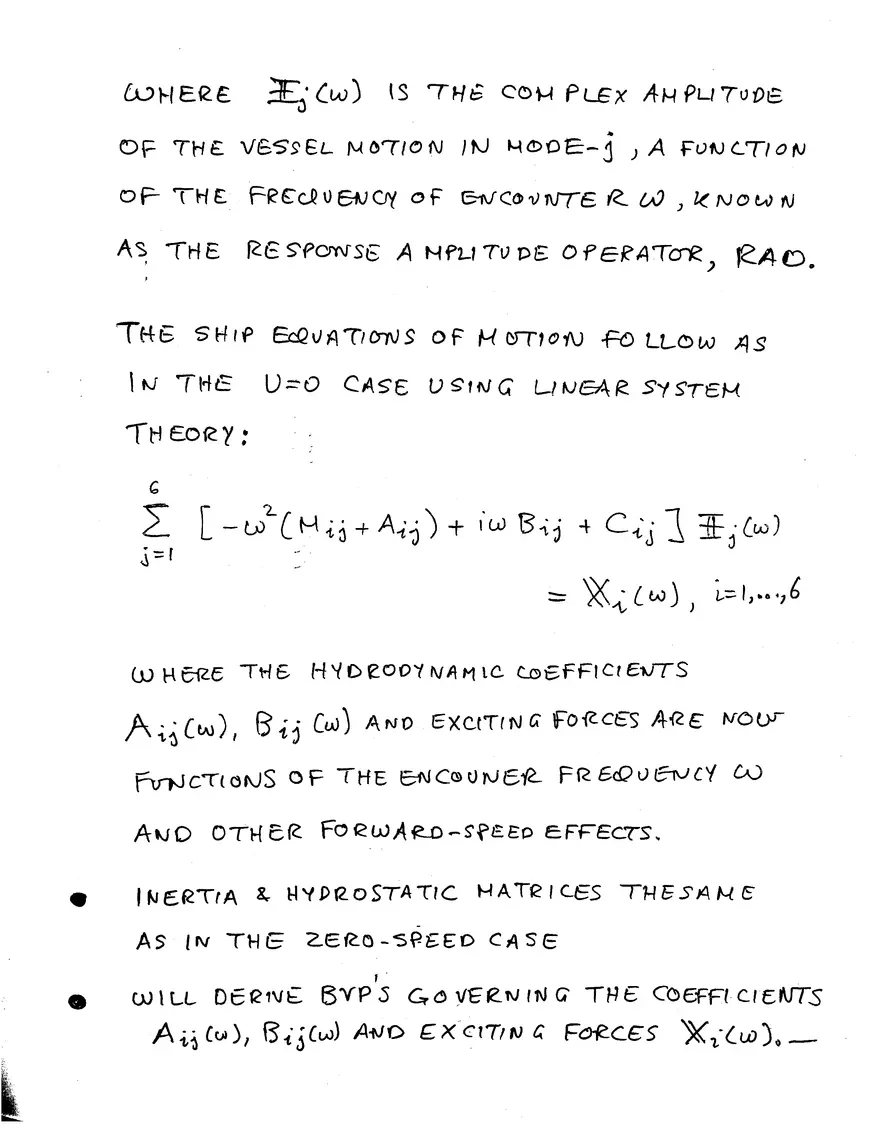 WHERE Ξj(ω) IS THE COMPLEX AMPLITUDE
OF THE VESSEL MOTION IN MODE-j, A FUNCTION
OF THE FREQUENCY OF ENCOUNTER ω, KNOWN
AS THE RESPONSE AMPLITUDE OPERATOR, RAO.
THE SHIP EQUATIONS OF MOTION FOLLOW AS
IN THE U=0 CASE USING LINEAR SYSTEM
THEORY:
6
∑ [-ω²(Mij + Aij) + iω Bij + Cij] Ξj(ω)
j=1
= 𝕏i(ω), i=1,...,6
WHERE THE HYDRODYNAMIC COEFFICIENTS
Aij(ω), Bij(ω) AND EXCITING FORCES ARE NOW
FUNCTIONS OF THE ENCOUNER FREQUENCY ω
AND OTHER FORWARD-SPEED EFFECTS.
• INERTIA & HYDROSTATIC MATRICES THE SAME
AS IN THE ZERO-SPEED CASE
• WILL DERIVE BVP'S GOVERNING THE COEFFICIENTS
Aij(ω), Bij(ω) AND EXCITING FORCES 𝕏i(ω).—